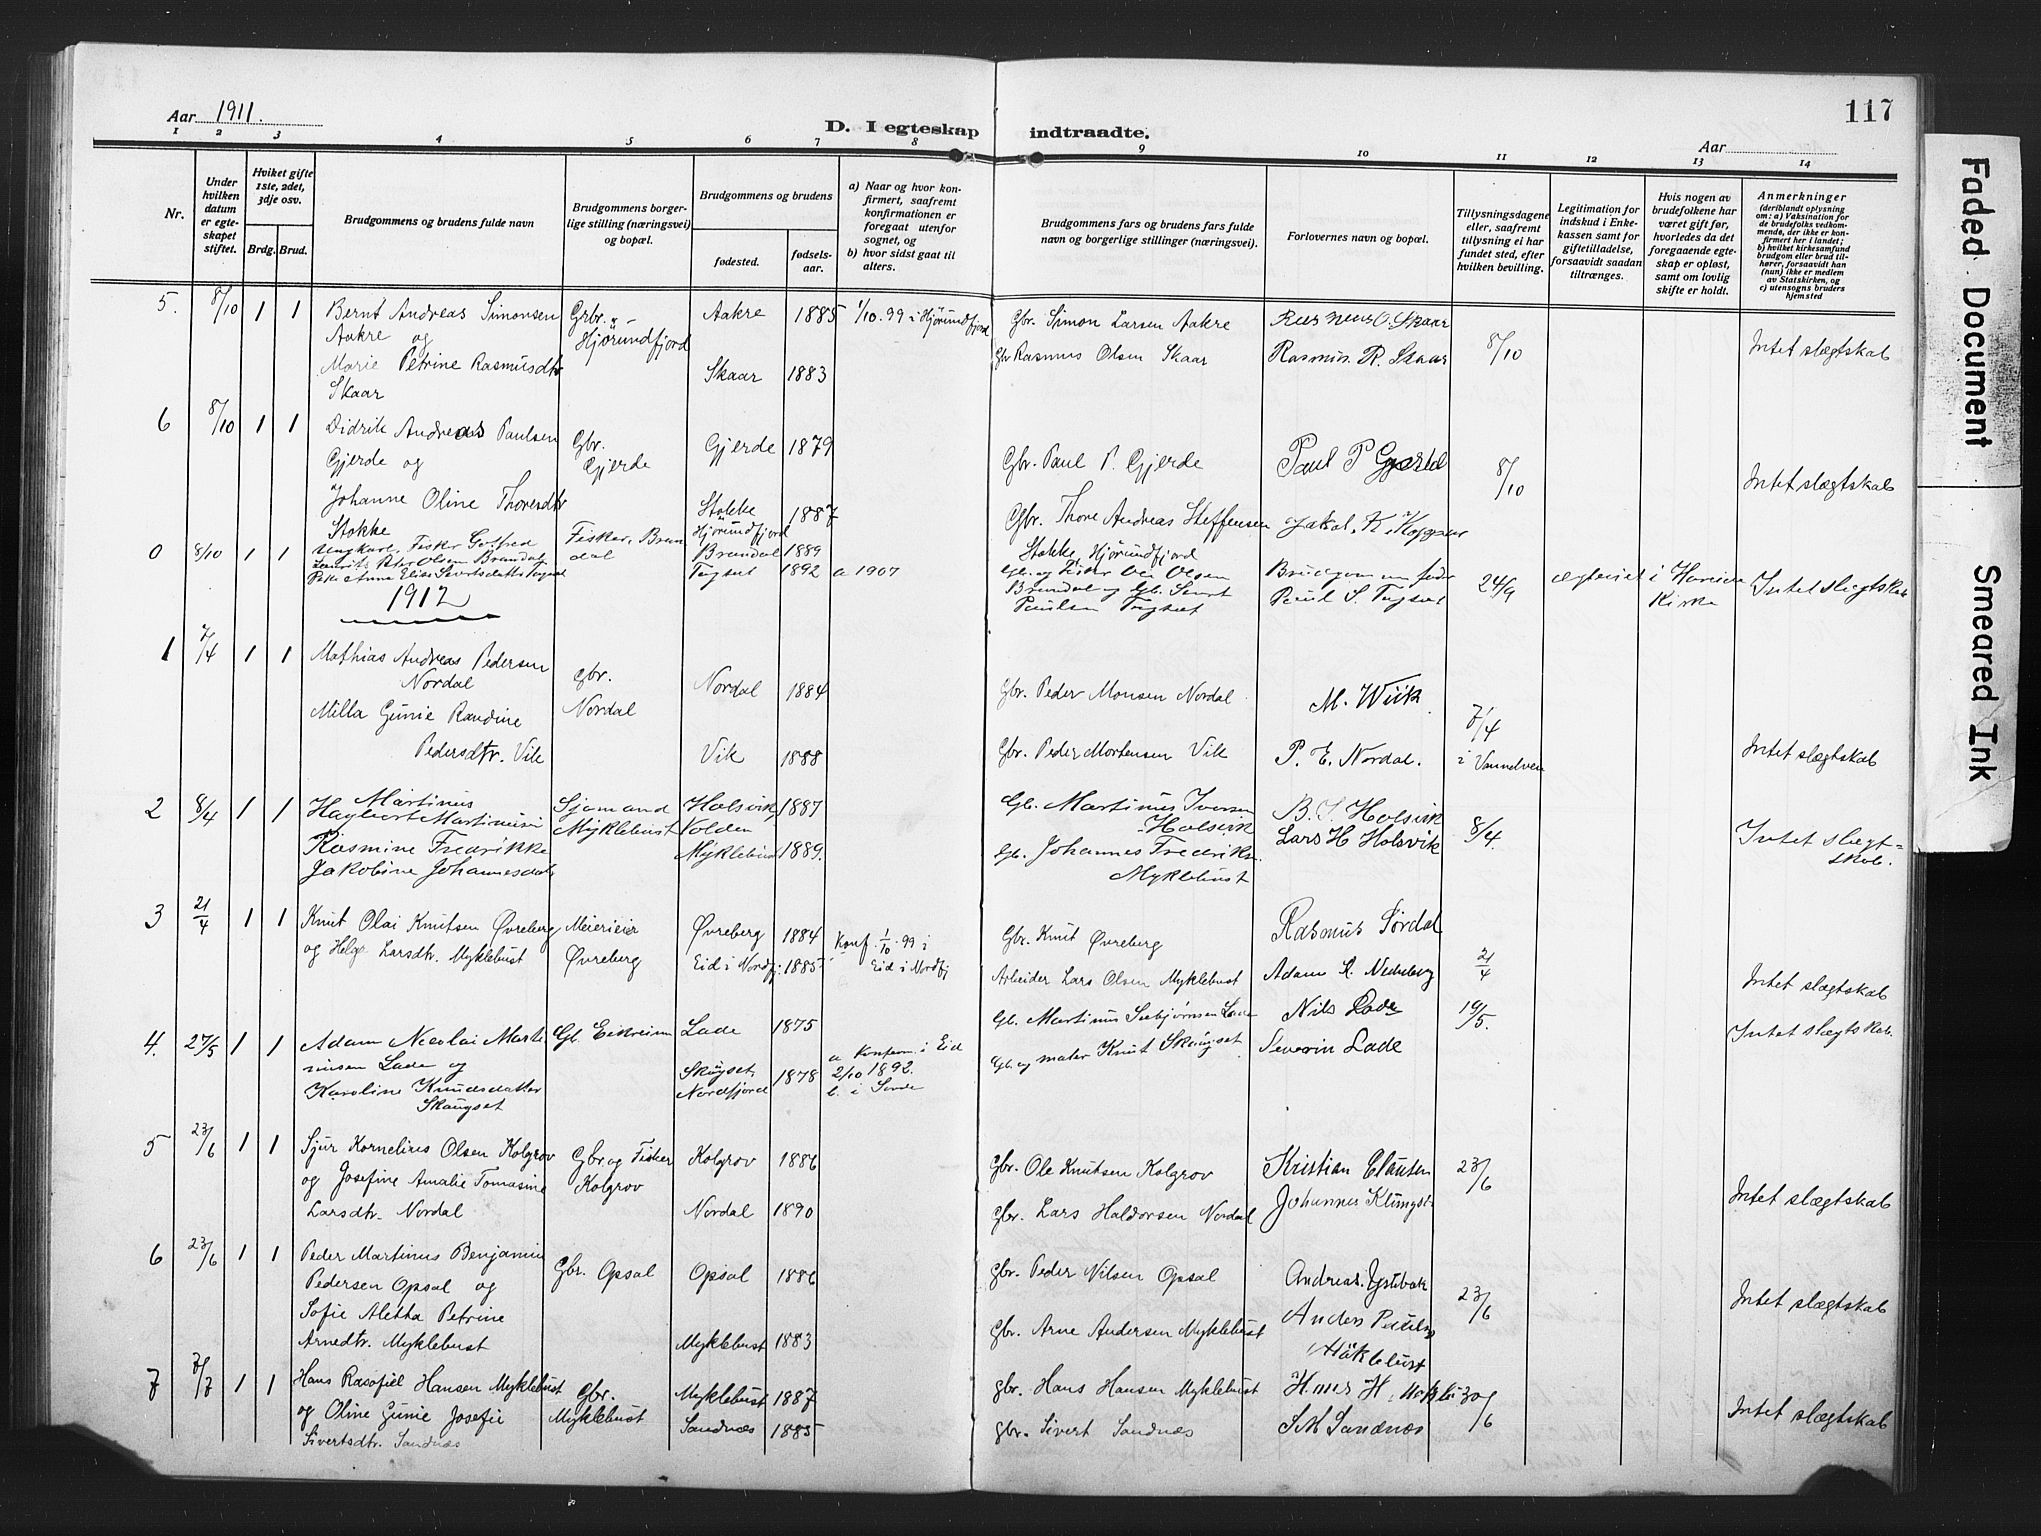 117
Aar 1911.
D. I egteskap indtraadte.
Aar
1 2 3 4 5 6 7 8 9 10 11 12 13 14
Nr.
Under hvilken datum er egteskapet stiftet.
Hviket gifte 1ste, 2det, 3dje osv.
Brdg. Brud.
Brudgommens og brudens fulde navn
Brudgommens borgerlige stilling (næringsvei) og bopæl.
Brudgommens og brudens
fødested.
fødselsaar.
a) Naar og hvor konfirmert, saafremt konfirmationen er foregaat utenfor sognet, og
b) hvor sidst gaat til alters.
Brudgommens fars og brudens fars fulde navn og borgerlige stillinger (næringsvei).
Forlovernes navn og bopæl.
Tillysningsdagene eller, saafremt tillysning ei har fundet sted, efter hvilken bevilling.
Legitimation for indskud i Enkekassen samt for giftetilladelse, forsaavidt saadan tiltrænges.
Hvis nogen av brudefolkene har været gift før, hvorledes da det foregaaende egteskap er opløst, samt om lovlig skifte er holdt.
Anmerkninger
(deriblandt oplysning om: a) Vaksination for de brudefolks vedkommende, der ikke er konfirmert her i landet; b) hvilket kirkesamfund brudgom eller brud tilhører, forsaavidt han (hun) ikke er medlem av Statskirken, og c) utensogns bruders hjemsted
5. 8/10 1 1 Bernt Andreas Simonsen Grbr. Aakre 1885 1/10.99 i Hjørundfjord Gbr. Simon Larsen Aakre Rasmus O. Skaar 8/10 Intet slægtskab
Aakre og Hjørundfjord
Marie Petrine Rasmusdtr Skaar 1883 Gbr Rasmus Olsen Skaar Rasmus R. Skaar
Skaar
6 8/10 1 1 Didrik Andreas Paulsen Gbr. Gjerde 1879 Gbr. Paul P. Gjerde Paul P Gjerde 8/10 Intet slægtskab
Gjerde og Gjerde
Johanne Oline Thoresdtr Stokke 1887 Gbr. Thore Andreas Steffensen
Stokke Hjørundfjord Stokke, Hjørundfjord
0 8/10 1 1 Ungkarl, Fisker Gotfred Fisker, Brandal Brandal 1889 Gb. og Fisker Ole Olsen 24/9 Intet slægtskab
Peter Olsen Brandal 1892 a 1907 Brandal og Gb. Sivert Paul S.
Pike Anna Elise Sivertsdatter Paulsen i Kirke
1912
1 7/4 1 1 Mathias Andreas Pedersen Gbr. Nordal 1884 Gbr. Peder Monsen Nordal M. Wiik 7/4 Intet slægtskab
Nordal Nordal
Milla Gunie Randine
Pedersdtr. Vik Vik 1888 Gbr. Peder Mortensen Vik P. E. Nordal. i Vannelven
2 8/4 1 1 Martinus Sjømand Holsvik 1887 Gb. Martinus Iversen B. S. Holsvik 8/4. Intet slægtskab.
Hagbert Martinusen Myklebust Volden Holsvik Lars H Holsvik
Rasmine Fredrikke Myklebust 1889. Gb. Johannes Fredriks.
Jakobine Johannesdatt Myklebust
3 21/4 1 1 Knut Olai Knutsen Øvreberg Meierieier Øvreberg 1884 Konf. 1/10.99 i Gbr. Knut Øvreberg Rasmus Sørdal 21/4 Intet slægtskab
og Helge Larsdtr. Myklebust Øvreberg Eid i Nordfj. 1885 Eid i Nordfj Arbeider Lars Olsen Myklebust
4. 27/5 1 1 Adam Nicolai Marti- Gb. Eikreim Lade 1875 a Konferm. i Eid Gb. Martinus Seebjørnsen Lade Nils Lade 19/5. Intet slægtskab.
nusen Lade og 2/10 1892. Gb. og maler Knut Skaugset Severin Lade
Karoline Knudsdatter Nordfjord 1878 b. i Sønde
Skaugset
5 23/6 1 1 Sjur Kornelius Olsen Kolgrov Gbr. og Fisker Kolgrov 1886 Gbr. Ole Knutsen Kolgrov Kristian Clausen 23/6 Intet slægtskab
og Josefine Amalie Tomasine Kolgrov Johannes
Larsdtr. Nordal Nordal 1890 Gbr. Lars Haldorsen Nordal
6 23/6 1 1 Peder Martinus Benjamin Gbr. Opsal Opsal 1886 Gbr. Peder Nilsen Opsal 23/6 Intet slægtskab
Pedersen Opsal og
Sofie Aletha Petrine Anders
Arnedtr. Myklebust Myklebust 1883 Gbr. Arne Andersen Myklebust
7 7/7 1 1 Hans Rasofiel Hansen Myklebust Gbr. Myklebust 1887 Gbr. Hans Hansen Myklebust 30/6 Intet slægtskab
og Oline Gunie Josefie Myklebust Sandnæs 1885 Gbr. Sivert Sandnæs S M Sandnæs
Sivertsdtr. Sandnæs
Faded Document
Smeared Ink